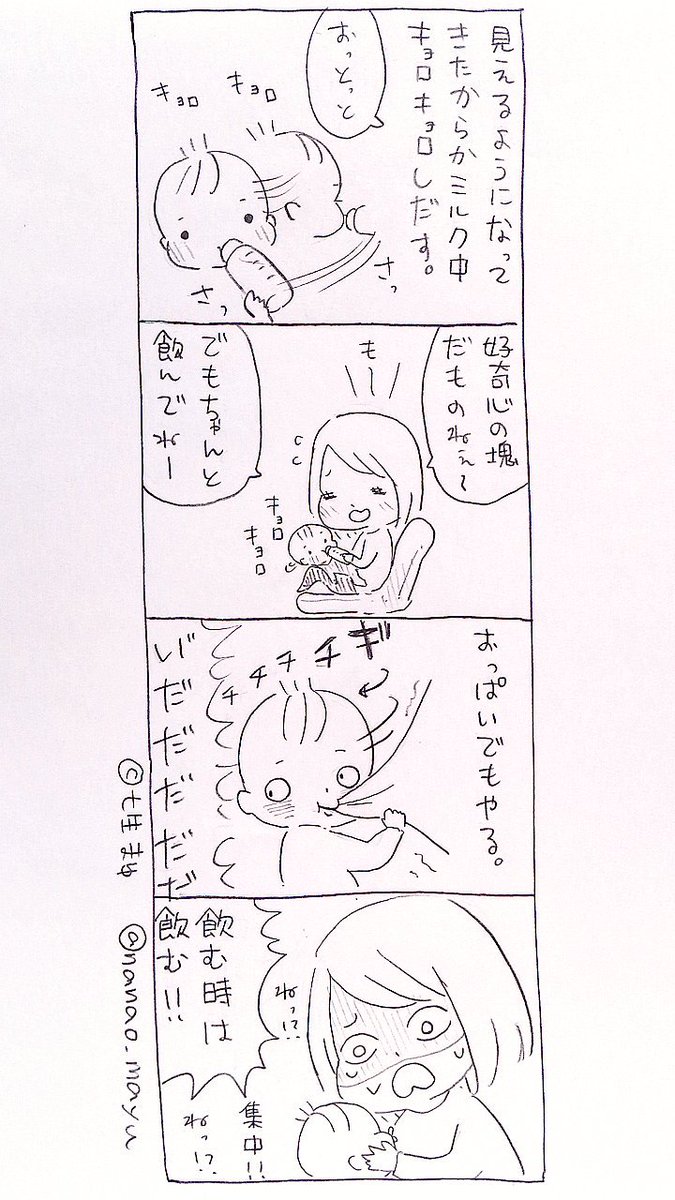 見えるようになって
きたからかミルク中
キョロキョロしだす。
おっとっと
キョロ
キョロ
さっ
さっ
好奇心の塊
だものねぇ〜
も〜
でもちゃんと
飲んでねー
キョロ
キョロ
おっぱいでもやる。
ギチチチチ
いだだだだだ
ねっ!?
飲む時は
飲む!!
集中!!
ねっ!?
©七生まゆ
@nanao.mayu